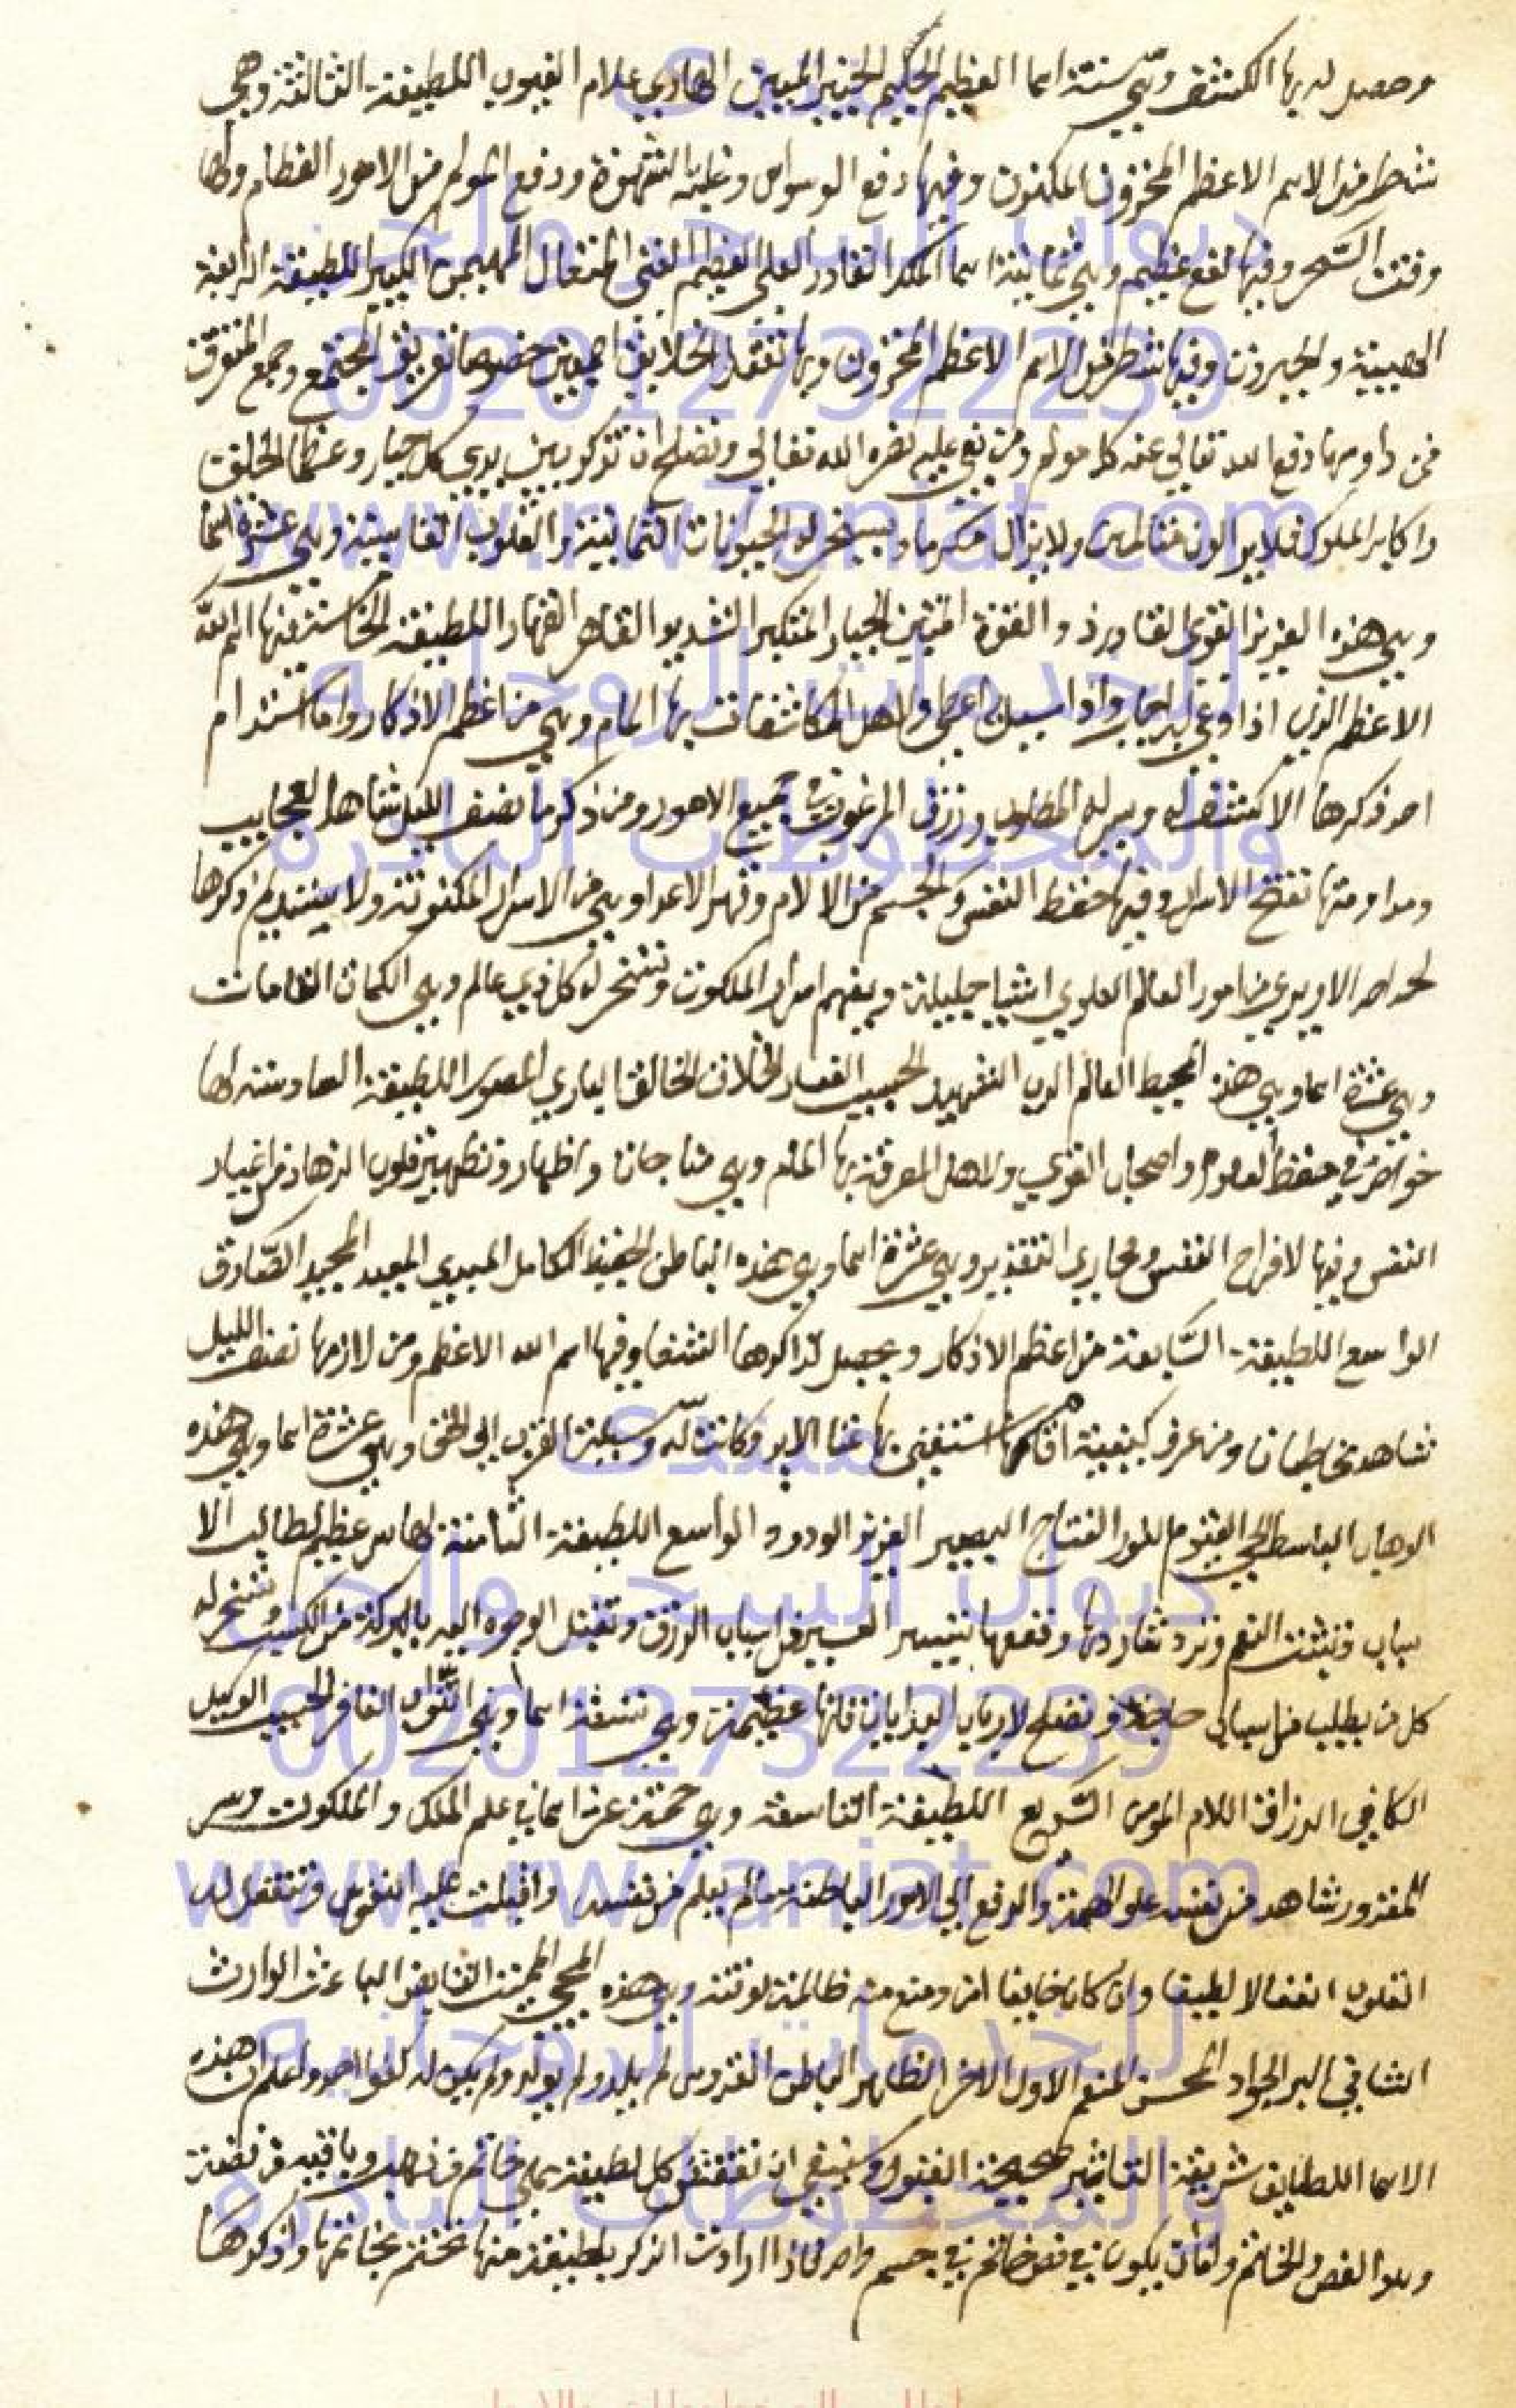 وحصل له بها الكشف وهي ستة اسما العظيم الحكيم الخبير المبين الهادي علام الغيوب اللطيفة الثالثة وهي
شطر من الاسم الاعظم المخزون المكنون وفيها دفع الوسواس وغلبة الشهوة ودفع من الامور العظام ولها
وقت السحر وفيها نفع عظيم وهي ثمانية اسما الملك القادر العلي العظيم الغني المتعال المهيمن الكبير اللطيفة الرابعة
الهيبة والجبروت وفيها شطر من الاسم الاعظم المخزون وبها تنقاد الخلايق اجمعين خصوصا تفريق المجتمع وجمع المتفرق
فمن داومها دفع الله تعالي عنه كل مولم ومن بغي عليه نصره الله تعالي وتصلح ان تذكر بين يدي كل جبار وعظما الخلق
واكابر الملوك فلا يزالون ولا يزال مكرما وبها يسخر له الحيوانات والقلوب القاسية وهي عشرة اسما
وهي هذه العزيز القوي القادر ذو القوة المتين الجبار المتكبر الشديد القاهر القهار اللطيفة الخامسة فيها اسم الله
الاعظم الذي اذا دعي به اجاب واذا سيل به اعطي ولاهل المكاشفات بها المام وهي من اعظم الاذكار وما استدام
احد ذكرها الا كشف له ويسر له المطلوب ورزق المرغوب في جميع الامور ومن ذكرها نصف الليل شاهد العجايب
ومداومتها تفتح الاسرار وفيها حفظ النفس والجسم من الالام وقهر الاعدا وهي من الاسرار المكنونة ولا يستديم ذكرها
احد الا ويري من امور العالم العلوي اشيا جليلة ويفهم اسرار الملكوت وتسخر له كل ذي عالم وهي الكلمات التامات
وهي عشرة اسما وهي هذه المحيط العالم الرب الشهيد الحسيب الفعال الخلاق الخالق الباري المصور اللطيفة السادسة لها
خواص في حفظ العلوم واصحاب القوي ولاهل المعرفة بها المام وهي مناجات واظهار وتطهير قلوب الزهاد من اغيار
النفس وفيها لافراح النفس ومجاري التقدير وهي عشرة اسما وهي هذه الباطن الحفيظ الكامل المبدي المعيد المجيد الصادق
الواسع اللطيفة السابعة من اعظم الاذكار ويحصل لذاكرها الشفا وفيها اسم الله الاعظم ومن لازمها نصف الليل
شاهد مخاطبات ومن عرف كيفية استغني بها غنا الابد وكانت له وسيلة القرب الي الحق وهي عشرة اسما وهي هذه
الوهاب الباسط الحي القيوم النور الفتاح البصير العزيز الودود الواسع اللطيفة الثامنة لها سر عظيم لطالب الا
سباب وتثبت النعم وترد شاردها وقصها بتيسير العسير من اسباب الرزق وتقبل الوجوه اليه بالبركة من الكسب وتسخر له
كل من يطلب من اسباب حاجة وتصلح لارباب البدايات فانها عظيمة وهي تسعة اسما وهي التواب الغافر الحسيب الوكيل
الكافي الرزاق السلام المومن السريع اللطيفة التاسعة وهي خمسة عشر اسما في علم الملك والملكوت وسر
المقدور شاهد من نفسه علو الهمة والرفع الي الامور الباطنة مالم يعلم من نفسه واقبلت عليه النفوس وتنفعل له
القلوب انفعالا لطيفا وان كان خايفا امن ومنع منه ظالمه لوقته وهي هذه المحيي المميت القابض الباعث الوارث
الشافي البر الجواد المحسن المنعم الاول الاخر الظاهر الباطن القدوس لم يلد ولم يولد ولم يكن له كفوا احد واعلم ان هذه
الاسما اللطايف شريفة التاثير صحيحة القبول وينبغي ان تنقش كل لطيفة علي خاتم من ذهب وباقيه من فضة
وهذا الفص والخاتم وان يكون في فص خاتم في جسم واحد فاذا اردت الذكر بلطيفة منها تختم بخاتمها واذكرها
منتدى
ديوان السحر والجن
0020127322239
www.rw7aniat.com
للخدمات الروحانية
والمخطوطات النادرة
منتدى
ديوان السحر والجن
0020127322239
www.rw7aniat.com
للخدمات الروحانية
والمخطوطات النادرة